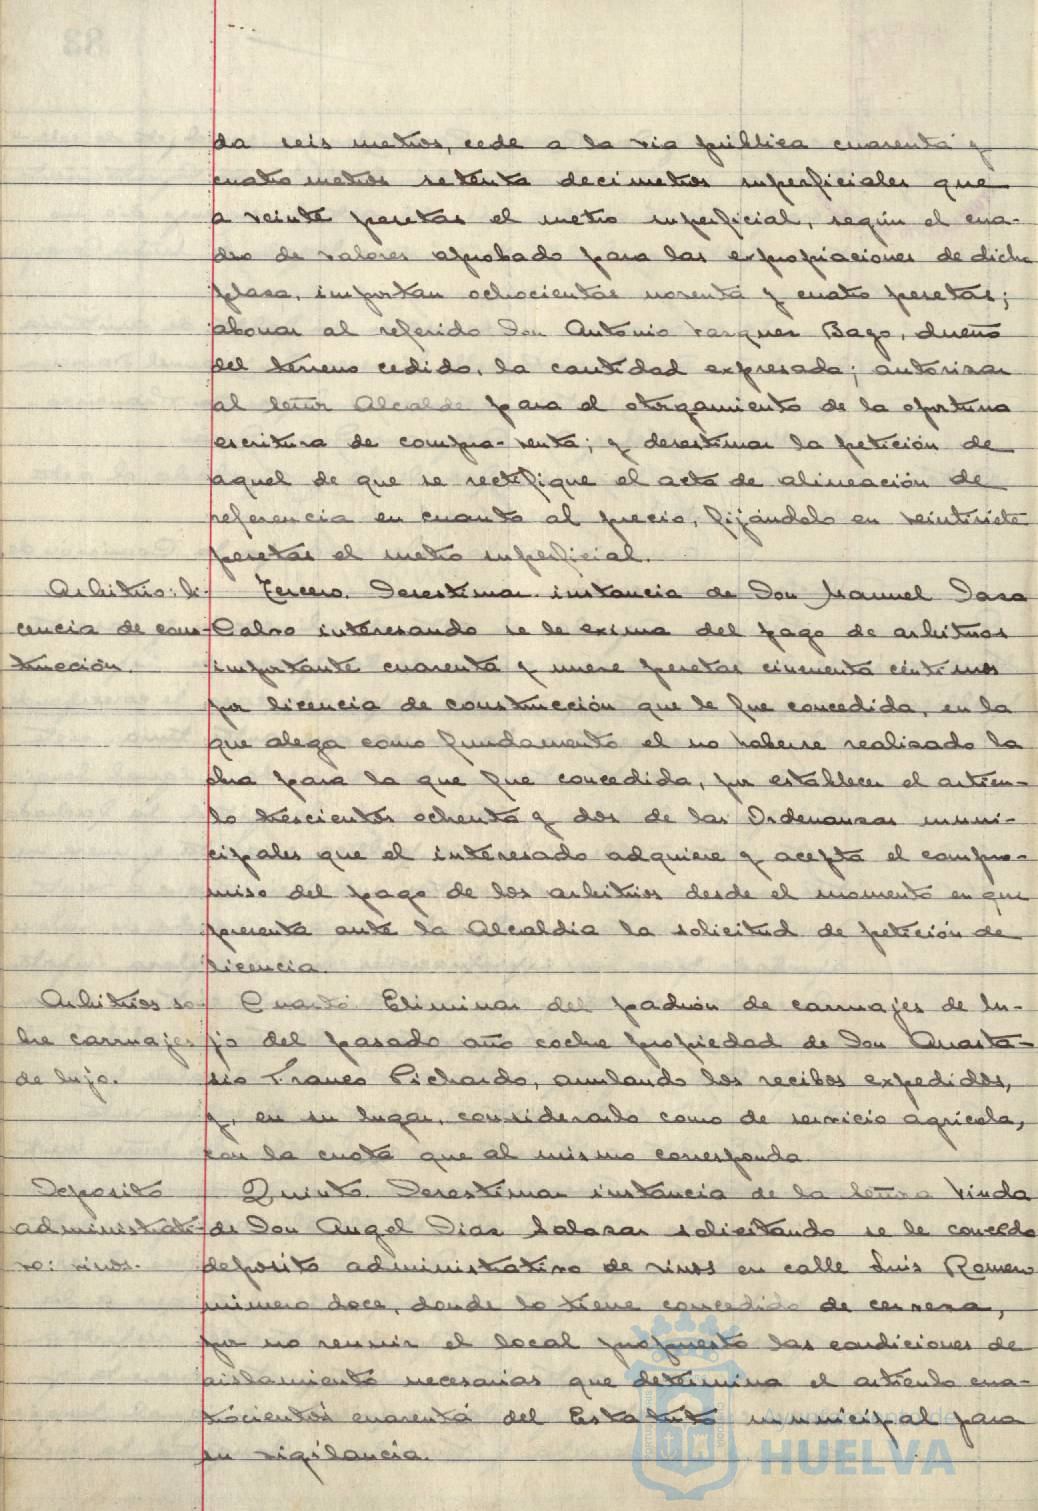 da seis metros, cede a la via pública cuarenta y
cuatro metros setenta decimetros superficiales que
a veinte pesetas el metro superficial, según el cua-
dro de valores aprobado para las expropiaciones de dicha
plaza, importan ochocientas noventa y cuatro pesetas;
abonar al referido Don Antonio Vazquez Bago, dueño
del terreno cedido, la cantidad expresada; autorizar
al señor Alcalde para el otorgamiento de la oportuna
escritura de compra-venta; y desestimar la petición de
aquel de que se rectifique el acta de alineación de
referencia en cuanto al precio, fijándolo en veintisiete
pesetas el metro superficial.
Arbitrio: li-
cencia de cons-
trucción.
Tercero. Desestimar instancia de Don Manuel Daza
Calvo interesando se le exima del pago de arbitrios
importante cuarenta y nueve pesetas cincuenta céntimos
por licencia de construcción que le fue concedida, en la
que alega como fundamento el no haberse realizado la
obra para la que fue concedida, por establecer el artícu-
lo trescientos ochenta y dos de las Ordenanzas muni-
cipales que el interesado adquiere y acepta el compro-
miso del pago de los arbitrios desde el momento en que
presenta ante la Alcaldia la solicitud de petición de
licencia.
Arbitrios so-
bre carruajes
de lujo.
Cuarto Eliminar del padrón de carruajes de lu-
jo del pasado año coche propiedad de Don Anasta-
sio Franco Pichardo, anulando los recibos expedidos,
y, en su lugar, considerarlo como de servicio agricola,
con la cuota que al mismo corresponda.
Deposito
administrati-
vo: vinos.
Quinto. Desestimar instancia de la señora Viuda
de Don Angel Diaz Salazar solicitando se le conceda
deposito administrativo de vinos en calle Luis Romero
número doce, donde lo tiene concedido de cerveza,
por no reunir el local propuesto las condiciones de
aislamiento necesarias que determina el articulo cua-
trocientos cuarenta del Estatuto municipal para
su vigilancia.
Ayuntamiento de
HUELVA